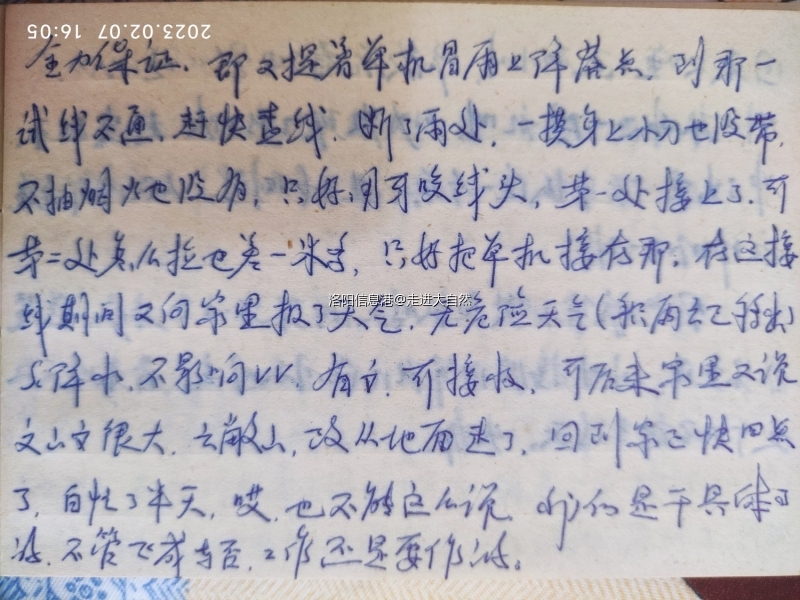 2023.02.07 16:05
全力保证。即又提着单机冒雨上降落点，到那一
试线不通，赶快查线，断了两处，一摸身上小刀也没带，
不抽烟火也没有，只好用牙咬线头，第一处接上了，可
第二处怎么拉也差一米多，只好把单机接在那。在这接
线期间又向家里报了天气，无危险天气（积雨云已移出）
降水，不影响VV，有云，可接收，可后来家里又说
文山文很大，云蔽山，改从地面走了，回到家已快四点
了，白忙了半天，哎，也不能这么说，我们是干具体工
不管飞成与否，工作还是要作的。
洛阳信息港@走进大自然